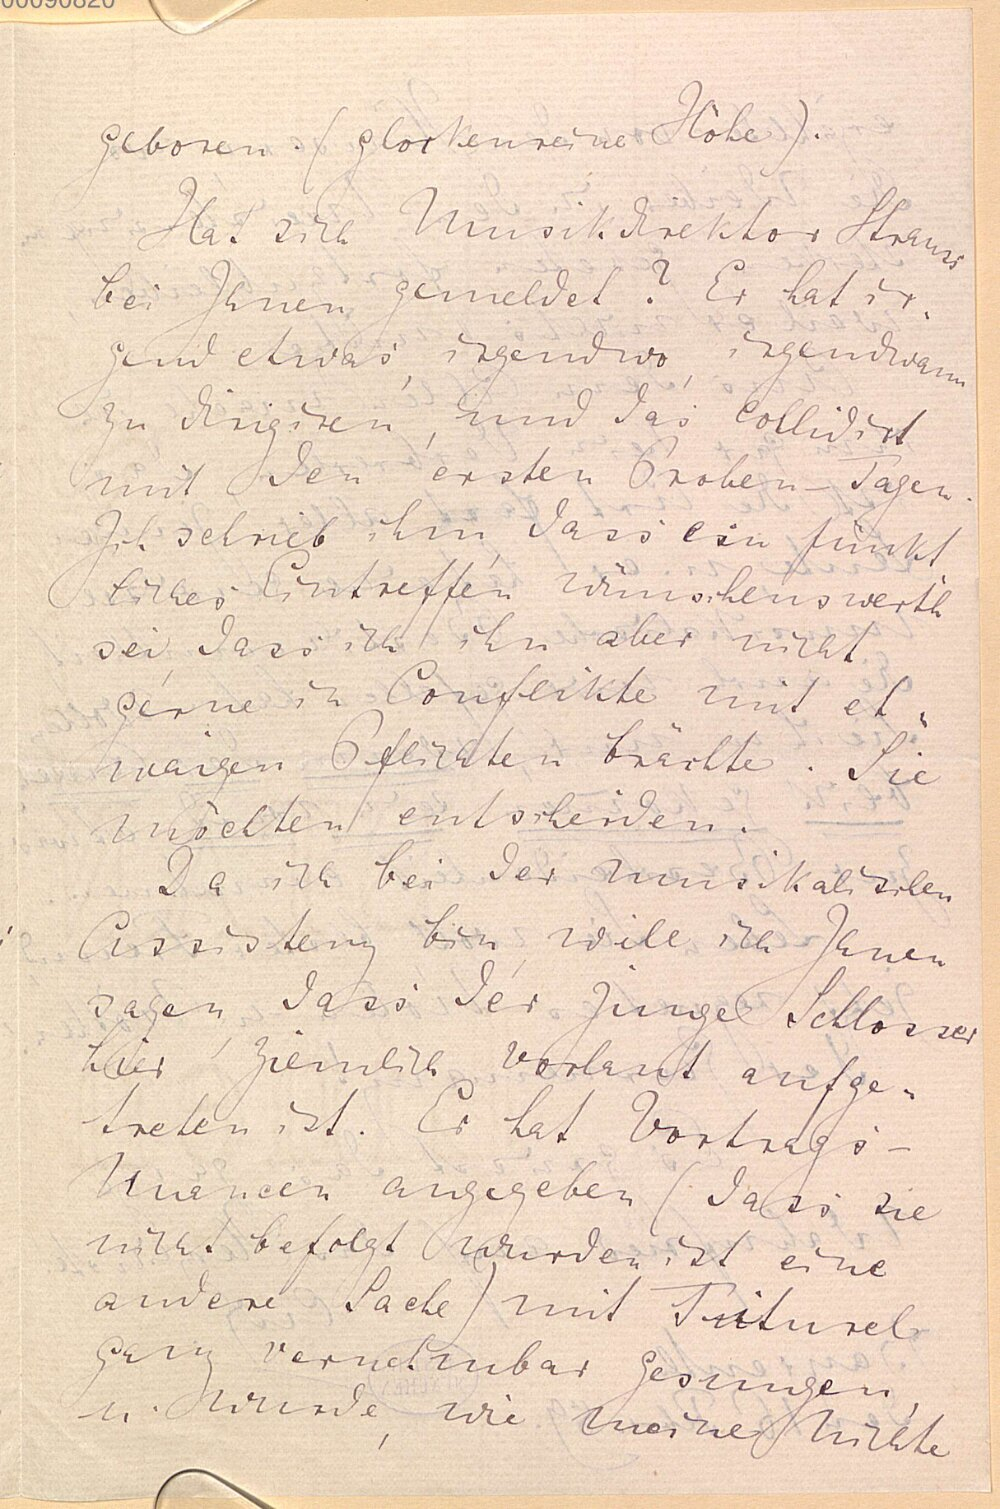 00090820
geboren. (glockenreine Höhe).
Hat sich Musikdirektor Strauss
bei Ihnen gemeldet? Er hat ir-
gend etwas, irgendwo, irgendwann
zu dirigiren, und das collidirt
mit den ersten Proben-Tagen.
Ich schrieb ihm, dass ein pünkt
liches Eintreffen wünschenswerth
sei, dass ich ihn aber nicht
gerne in Conflikte mit et-
waigen Pflichten brächte. Sie
möchten entscheiden.
Da ich bei der musikalischen
Assistenz bin, will ich Ihnen
sagen, dass der junge Schlosser
hier ziemlich vorlaut aufge-
treten ist. Er hat Vortrags-
Nuancen angegeben (dass sie
nicht befolgt wurden ist eine
andere Sache) mit Titurel
ganz vernehmbar gesungen,
u. wurde, wie meine Nichte